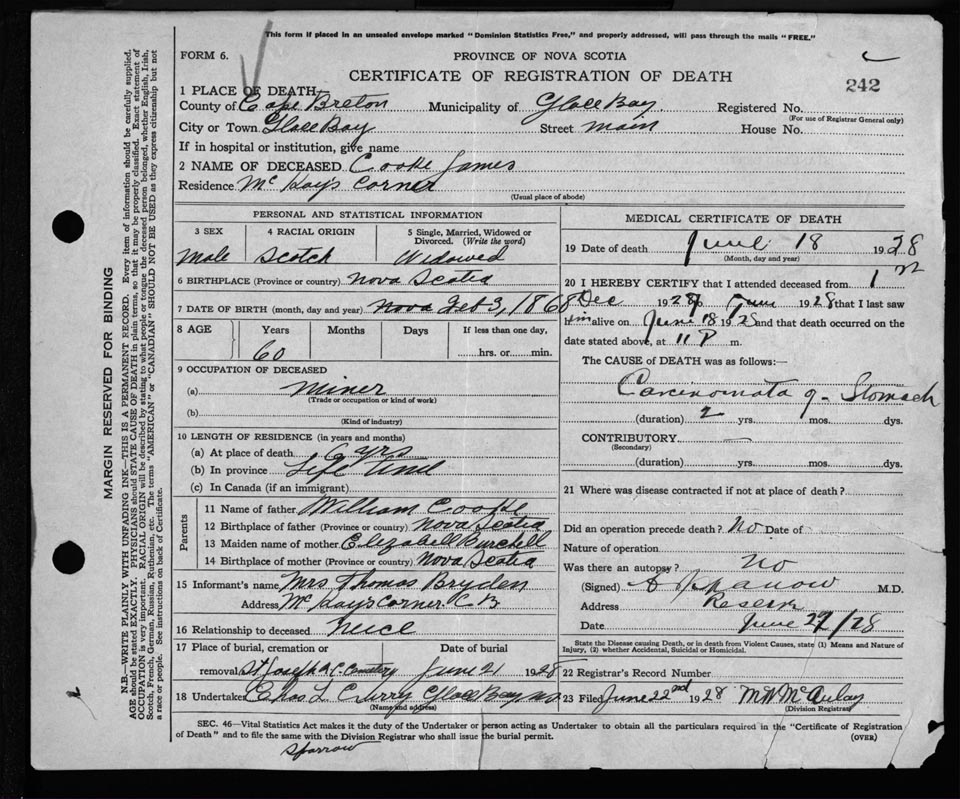 This form if placed in an unsealed envelope marked "Dominion Statistics Free," and properly addressed, will pass through the mails "FREE."
FORM 6.
PROVINCE OF NOVA SCOTIA
CERTIFICATE OF REGISTRATION OF DEATH
242
1 PLACE OF DEATH,
County of Cape Breton Municipality of Glace Bay Registered No.
(For use of Registrar General only)
City or Town Glace Bay Street Main House No.
If in hospital or institution, give name
2 NAME OF DECEASED Cooke James
Residence McKays Corner
(Usual place of abode)
PERSONAL AND STATISTICAL INFORMATION
3 SEX 4 RACIAL ORIGIN 5 Single, Married, Widowed or Divorced. (Write the word)
Male Scotch Widowed
6 BIRTHPLACE (Province or country) Nova Scotia
7 DATE OF BIRTH (month, day and year) Nova Feb 3, 1868
8 AGE Years Months Days If less than one day,
60 hrs. or min.
9 OCCUPATION OF DECEASED
(a) Miner
(Trade or occupation or kind of work)
(b)
(Kind of industry)
10 LENGTH OF RESIDENCE (in years and months)
(a) At place of death 6 yrs
(b) In province Life Time
(c) In Canada (if an immigrant)
Parents
11 Name of father William Cooke
12 Birthplace of father (Province or country) Nova Scotia
13 Maiden name of mother Elizabell Burchell
14 Birthplace of mother (Province or country) Nova Scotia
15 Informant's name Mrs Thomas Bryden
Address McKays Corner C B
16 Relationship to deceased Neice
17 Place of burial, cremation or Date of burial
removal St Joseph R.C. Cemetery June 21 1928
18 Undertaker Chas L Curry Glace Bay NS
(Name and address)
MEDICAL CERTIFICATE OF DEATH
19 Date of death June 18 1928
(Month, day and year)
20 I HEREBY CERTIFY that I attended deceased from 1
Dec 1927 June 1928 that I last saw
him alive on June 18 1928 and that death occurred on
date stated above, at 11 P m.
The CAUSE OF DEATH was as follows:—
Carcinomata of Stomach
(duration) 2 yrs. mos. dys.
CONTRIBUTORY —
(Secondary)
(duration) yrs. mos. dys.
21 Where was disease contracted if not at place of death?
Did an operation precede death? No Date of
Nature of operation
Was there an autopsy? No
(Signed) M.D.
Address Reserve
Date June 22/28
State the Disease causing Death, or in death from Violent Causes, state (1) Means and Nature of Injury, (2) whether Accidental, Suicidal or Homicidal.
22 Registrar's Record Number
23 Filed June 22nd 1928 M W McAulay
(Division Registrar)
SEC. 46—Vital Statistics Act makes it the duty of the Undertaker or person acting as Undertaker to obtain all the particulars required in the "Certificate of Registration
of Death" and to file the same with the Division Registrar who shall issue the burial permit.
(OVER)
Sparrow
MARGIN RESERVED FOR BINDING
N.B.—WRITE PLAINLY WITH UNFADING INK—THIS IS A PERMANENT RECORD. Every item of information should be carefully supplied.
AGE should be stated EXACTLY. PHYSICIANS should STATE CAUSE OF DEATH in plain terms, so that it may be properly classified. Exact statement of
OCCUPATION is very important. RACIAL ORIGIN will be described by stating to what people or tongue the deceased person belonged, whether English, Irish,
Scotch, French, German, Russian, Ruthenian, etc. The terms "AMERICAN" or "CANADIAN" SHOULD NOT BE USED as they express citizenship but not
a race or people. See instructions on back of Certificate.